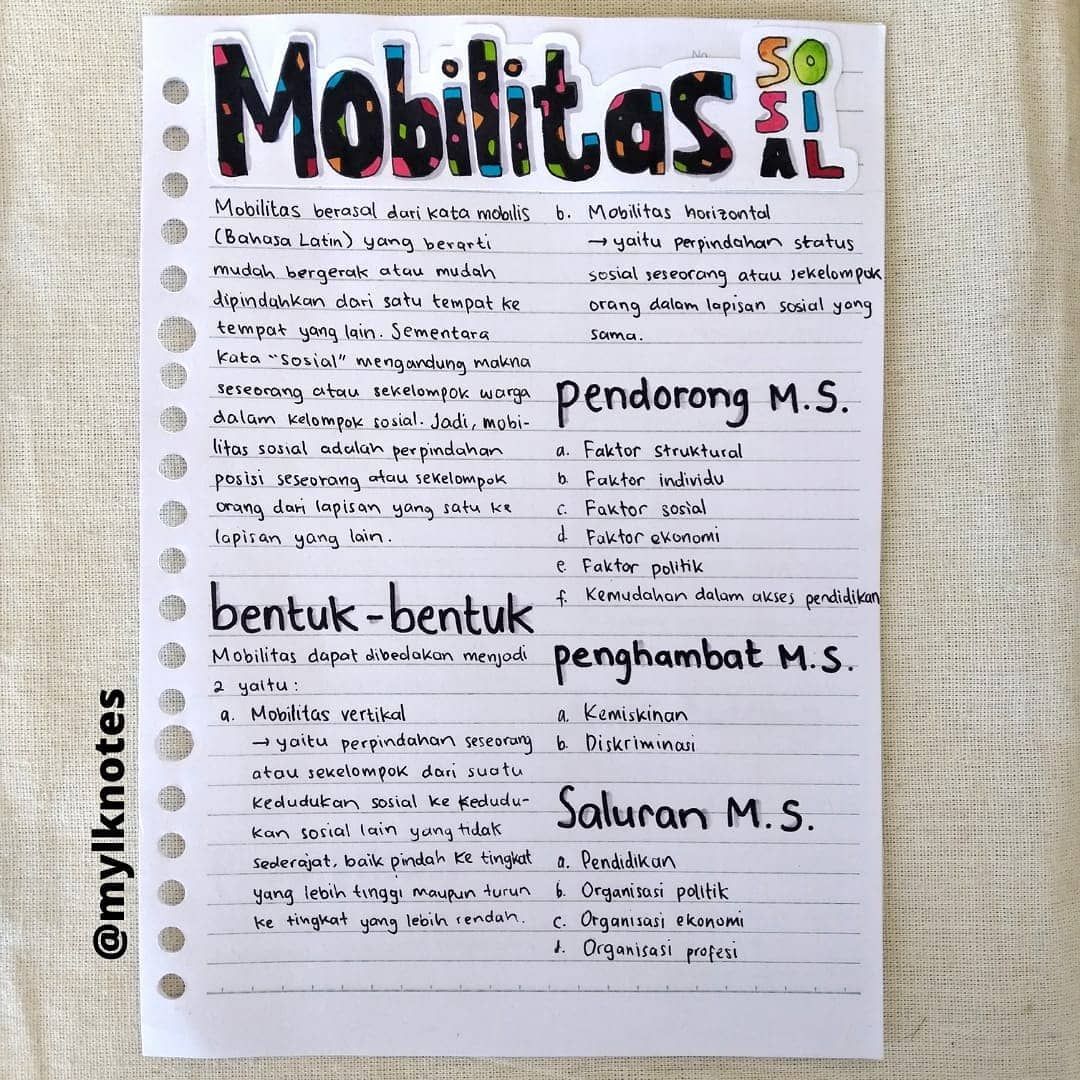 Mobilitas
SO
SI
AL
No.
Mobilitas berasal dari kata mobilis
(Bahasa Latin) yang berarti
mudah bergerak atau mudah
dipindahkan dari satu tempat ke
tempat yang lain. Sementara
kata "sosial" mengandung makna
seseorang atau sekelompok warga
dalam kelompok sosial. Jadi, mobi-
litas sosial adalah perpindahan
posisi seseorang atau sekelompok
orang dari lapisan yang satu ke
lapisan yang lain.
bentuk-bentuk
Mobilitas dapat dibedakan menjadi
2 yaitu :
a. Mobilitas vertikal
→ yaitu perpindahan seseorang
atau sekelompok dari suatu
kedudukan sosial ke kedudu-
kan sosial lain yang tidak
sederajat, baik pindah ke tingkat
yang lebih tinggi maupun turun
ke tingkat yang lebih rendah.
b. Mobilitas horizontal
→ yaitu perpindahan status
sosial seseorang atau sekelompok
orang dalam lapisan sosial yang
sama.
pendorong M.S.
a. Faktor struktural
b. Faktor individu
c. Faktor sosial
d. Faktor ekonomi
e. Faktor politik
f. Kemudahan dalam akses pendidikan
penghambat M.S.
a. Kemiskinan
b. Diskriminasi
Saluran M.S.
a. Pendidikan
b. Organisasi politik
c. Organisasi ekonomi
d. Organisasi profesi
@mylknotes